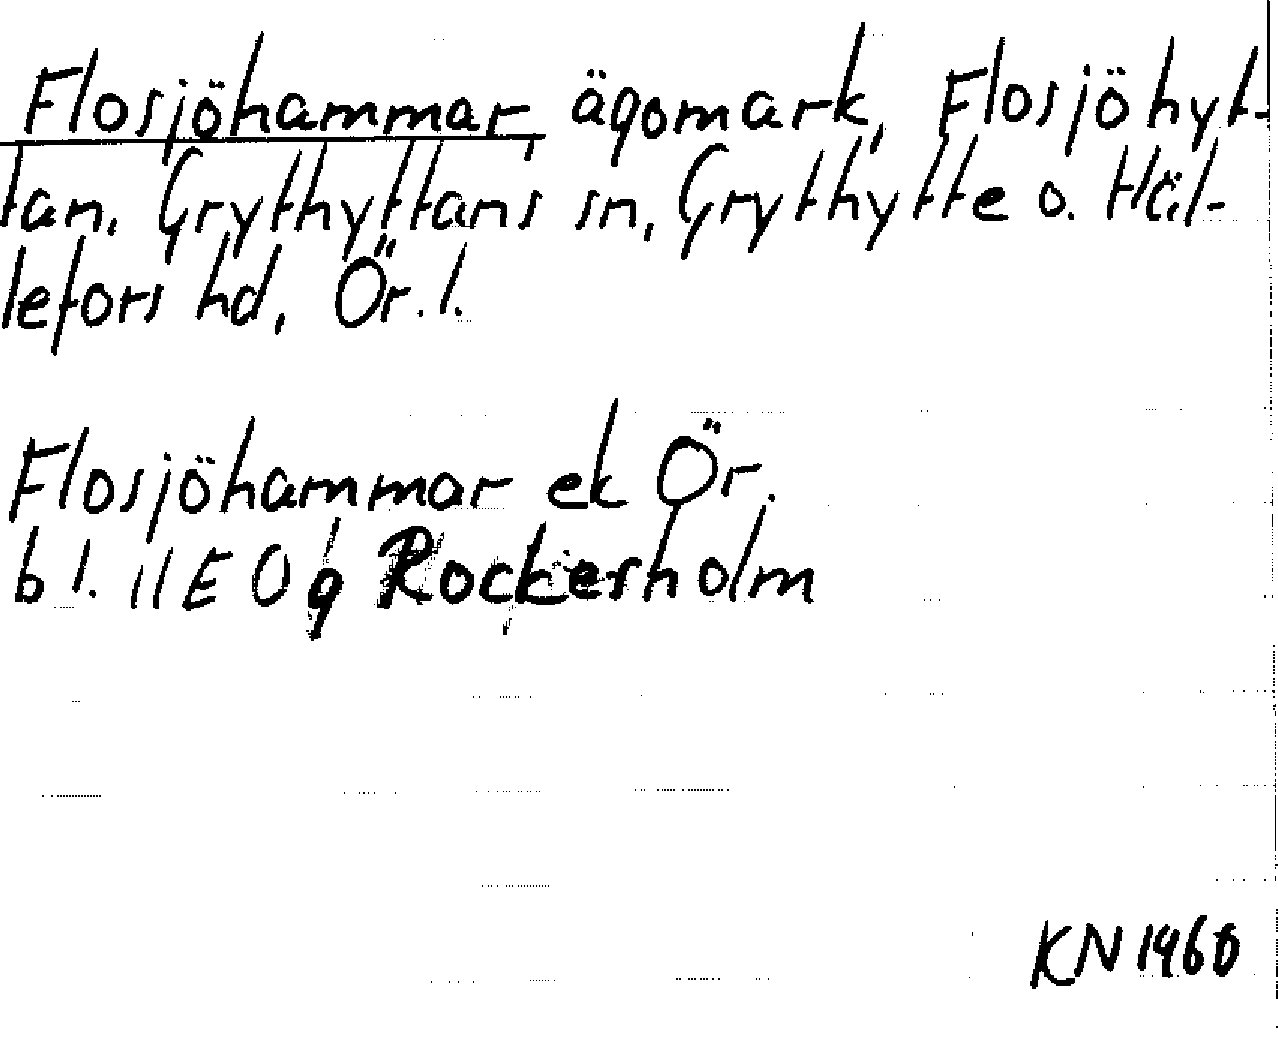 Flosjöhammar, ägomark, Flosjöhyt-
tan, Grythyttans sn, Grythytte o. Häl-
lefors hd, Ör. l.
Flosjöhammar ek Ör.
bl. 11E 0g Rockesholm
KN 1960